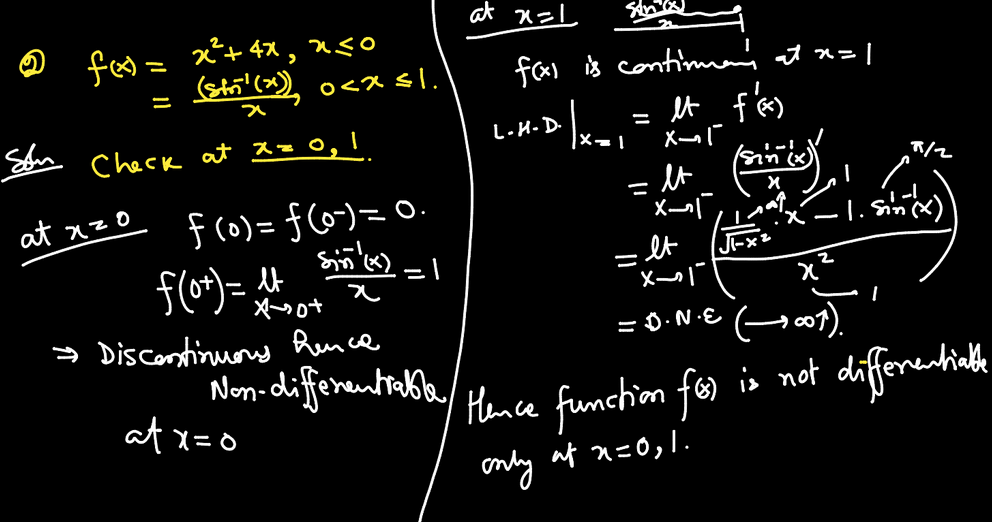 ② f(x) = x² + 4x, x ≤ 0
= (sin⁻¹(x))/x, 0 < x ≤ 1.
Soln Check at x = 0, 1.
at x = 0 f(0) = f(0-) = 0.
f(0+) = lt x→0+ sin⁻¹(x)/x = 1
⇒ Discontinuous hence
Non-differentiable
at x = 0
at x = 1 sin⁻¹(x)/x
f(x) is continuous at x = 1
L.H.D.|x=1 = lt x→1⁻ f'(x)
= lt x→1⁻ (sin⁻¹(x)/x)'
= lt x→1⁻ ((1/√1-x² · x - 1. sin⁻¹(x))/x²) ∞↑ 1 π/2 1
= D.N.E (→ ∞↑).
Hence function f(x) is not differentiable
only at x = 0, 1.